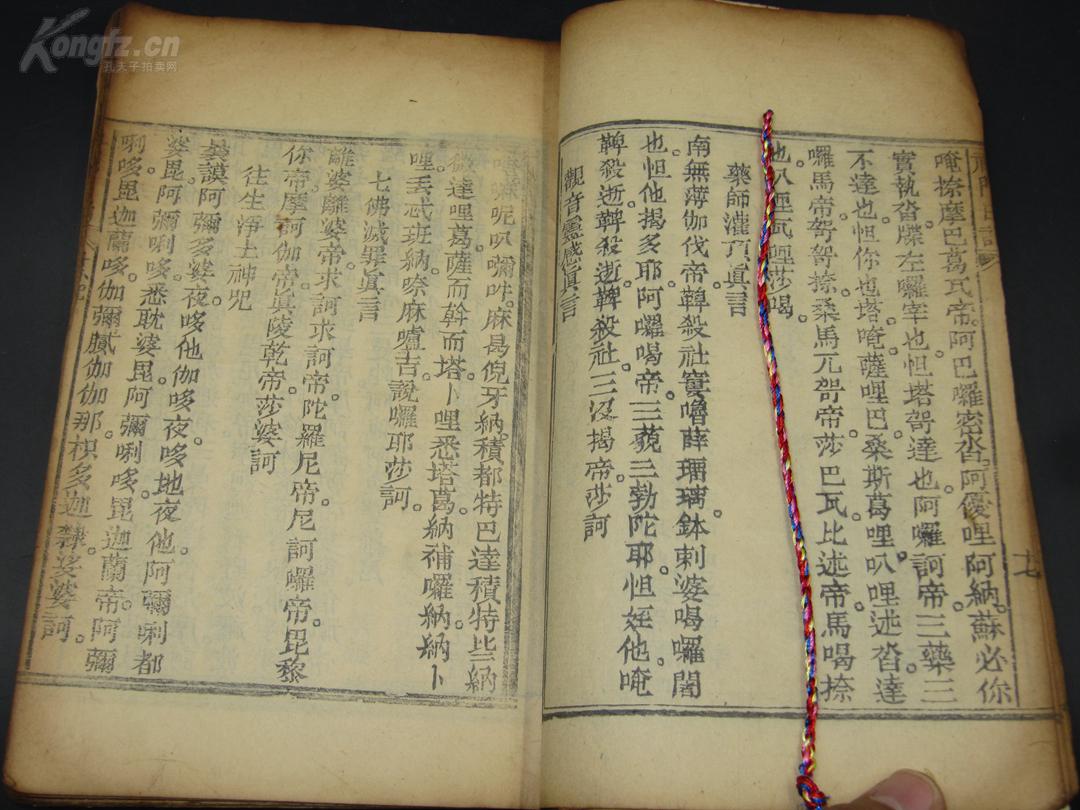 唵捺摩巴葛瓦帝。阿巴囉密沓。阿優哩阿納。蘇必你
實執沓牒左囉宰也怛塔哿達也阿囉訶帝三藥三
不達也怛你也塔唵。薩哩巴。桑斯葛哩。叭哩述沓。達
囉馬帝。哿哿捺。桑馬兀哿帝。莎巴瓦比述帝。馬喝捺
也。叭哩瓦哩莎喝。
藥師灌頂眞言
南無薄伽伐帝。鞞殺社。窶嚕薛琉璃。鉢刺婆。喝囉闍
也。怛他揭多耶。阿囉喝帝。三藐三勃陀耶。怛姪他。唵
鞞殺逝。鞞殺逝。鞞殺社。三沒揭帝。莎訶
觀音靈感眞言
唵嘛呢叭囑吽。麻曷倪牙納。積都特巴達。積特些納
微達哩葛。薩而斡而塔。卜哩悉塔葛。納補囉納。納卜
哩。丟忒班納。㗇麻嚧吉。說囉耶莎訶。
七佛滅罪眞言
離婆離婆帝。求訶求訶帝。陀羅尼帝。尼訶囉帝。毘黎
你帝。摩訶伽帝。眞陵乾帝。莎婆訶
往生淨土神咒
㜑謨阿彌多婆夜。哆他伽哆夜。哆地夜他。阿彌唎都
婆毘。阿彌唎哆。悉耽婆毘。阿彌唎哆。毘迦蘭帝。阿彌
唎哆。毘迦蘭哆。伽彌膩。伽伽那。枳多迦隸。娑婆訶。
七
Kongfz.cn
孔夫子拍卖网